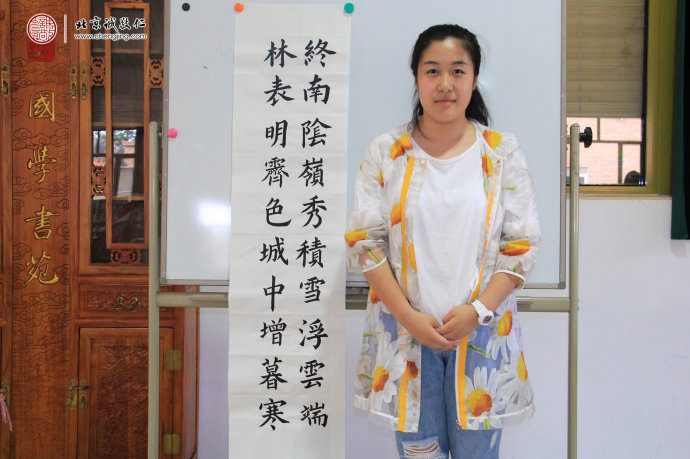 北京诚敬仁
www.chengjing.com
國学書苑
終南陰嶺秀積雪浮雲端
林表明霽色城中增暮寒